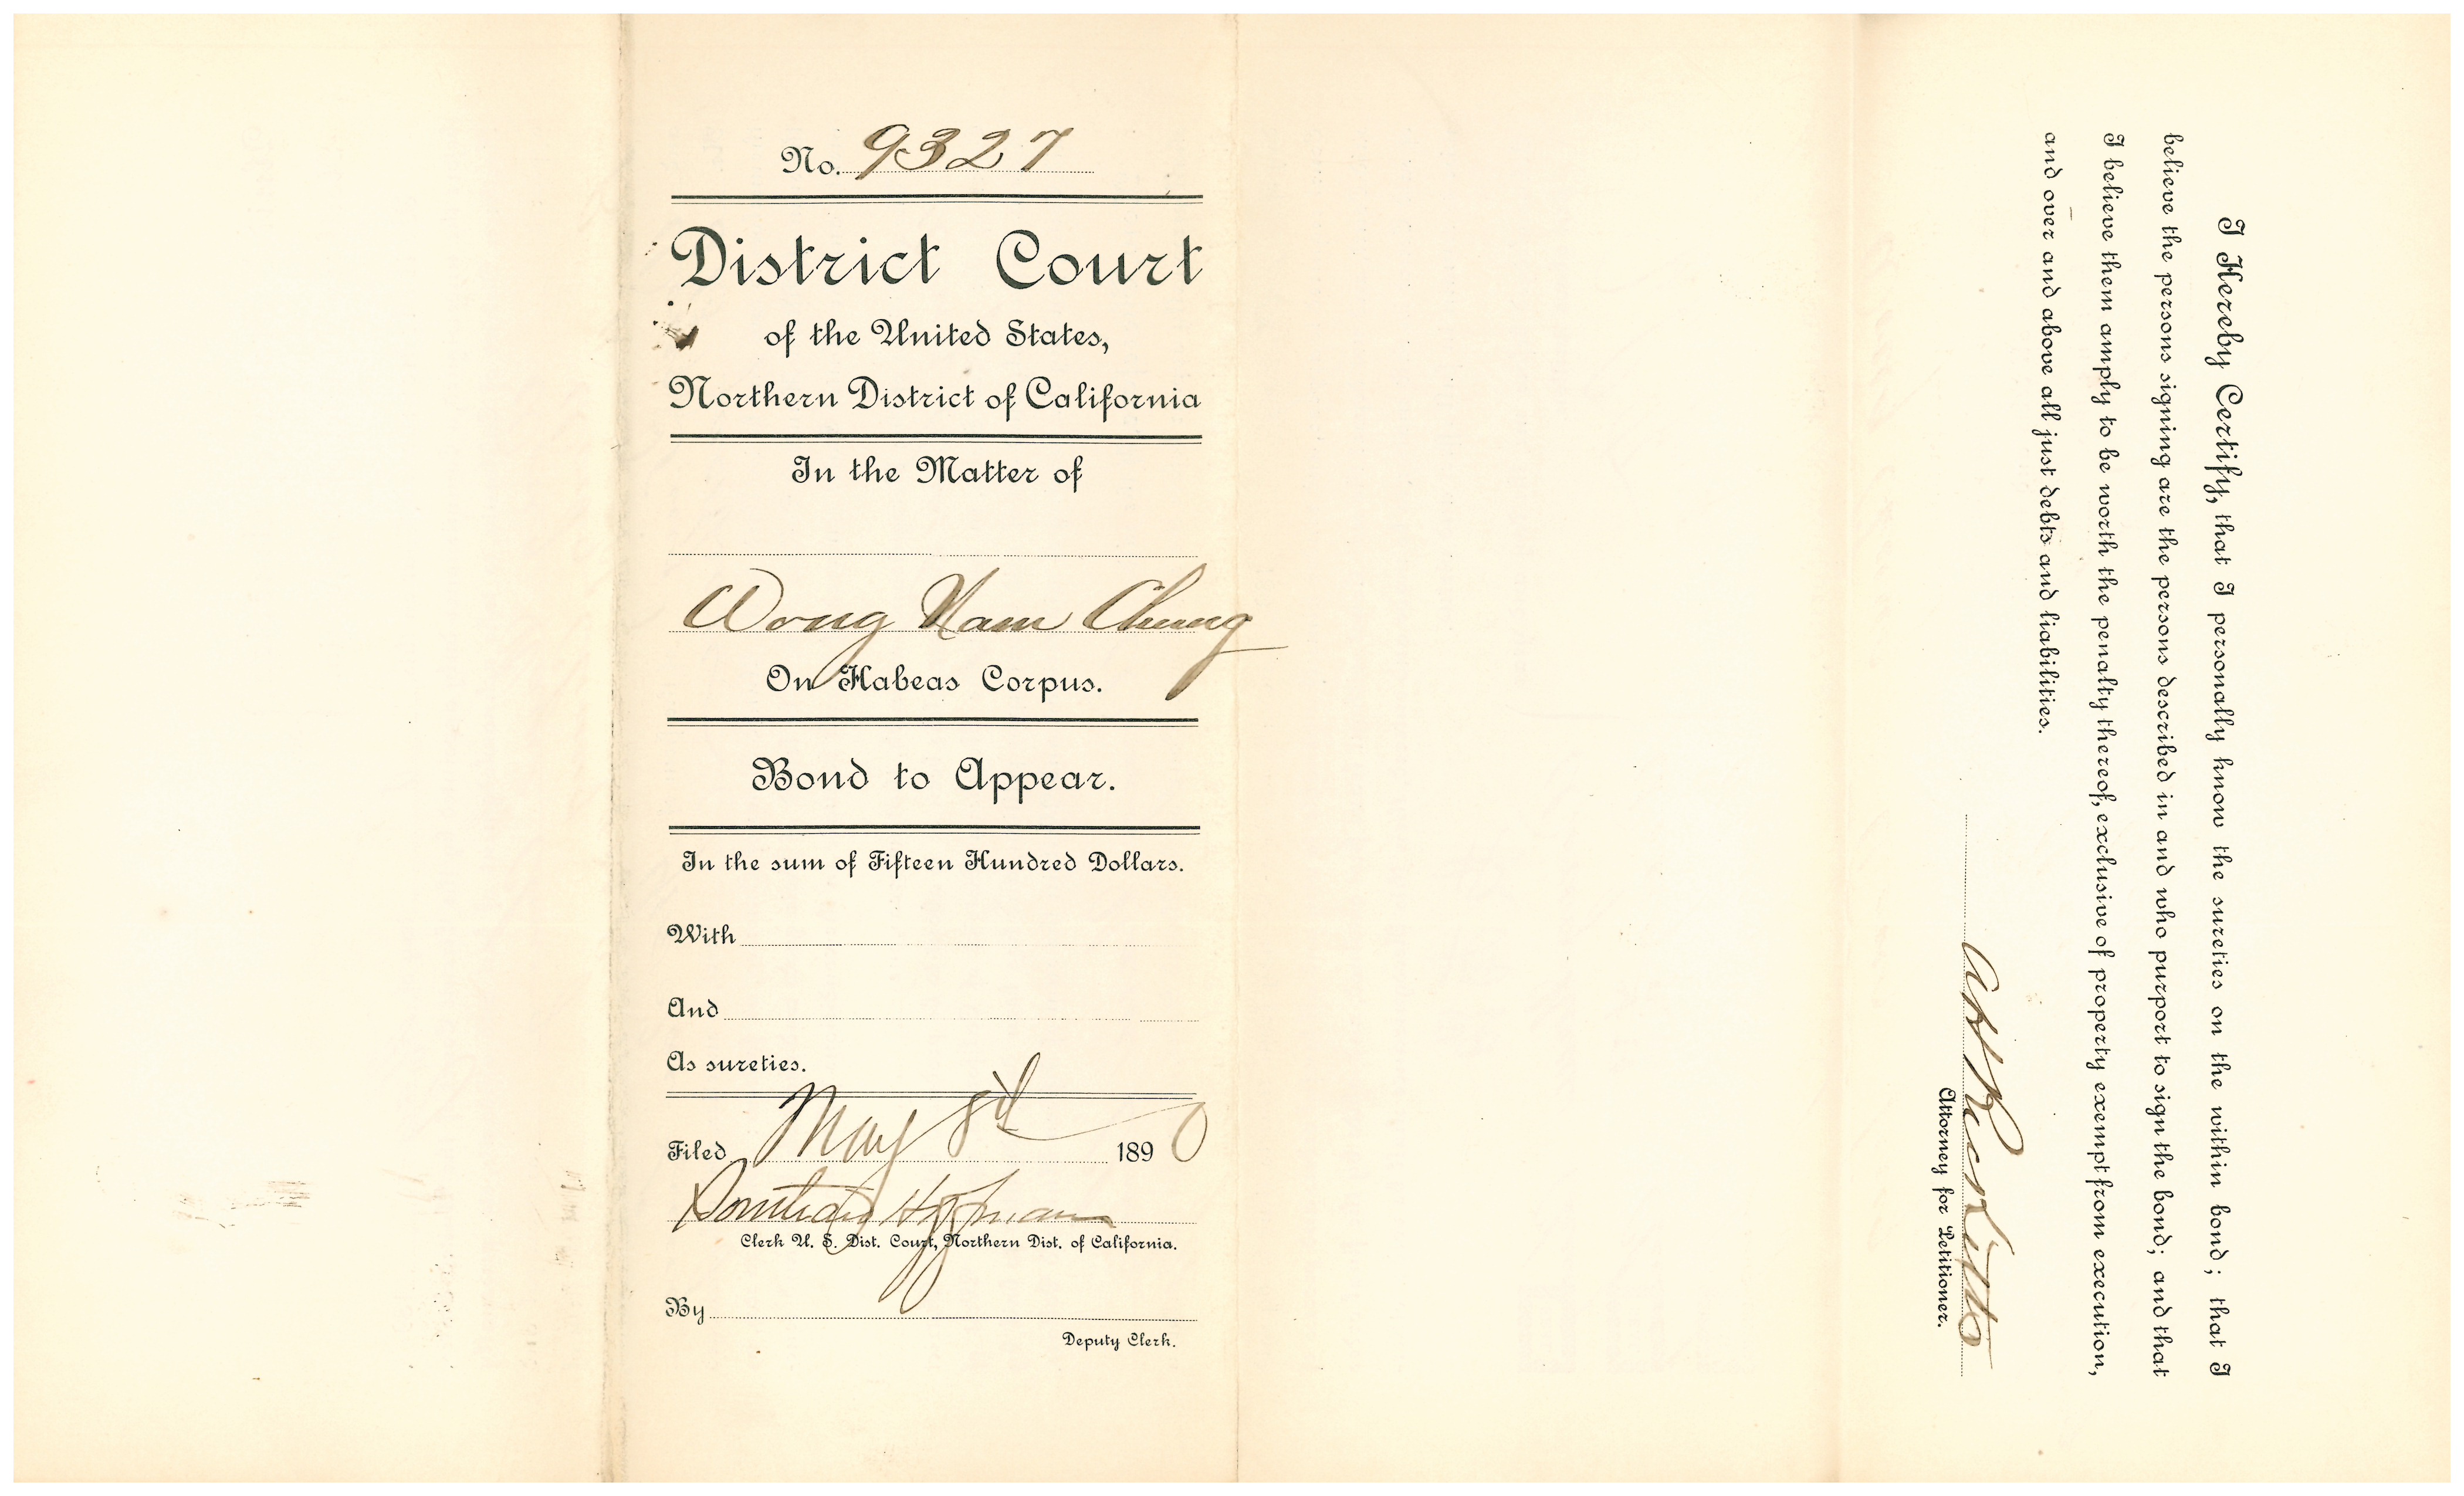 No. 9327
District Court
of the United States,
Northern District of California
In the Matter of
Wong Nam Chung
On Habeas Corpus.
Bond to Appear.
In the sum of Fifteen Hundred Dollars.
With
And
As sureties.
Filed May 8th 1890
Southard Hoffman
Clerk U. S. Dist. Court, Northern Dist. of California.
By
Deputy Clerk.
I Hereby Certify, that I personally know the sureties on the within bond; that I
believe the persons signing are the persons described in and who purport to sign the bond; and that
I believe them amply to be worth the penalty thereof, exclusive of property exempt from execution,
and over and above all just debts and liabilities.
Attorney for Petitioner.